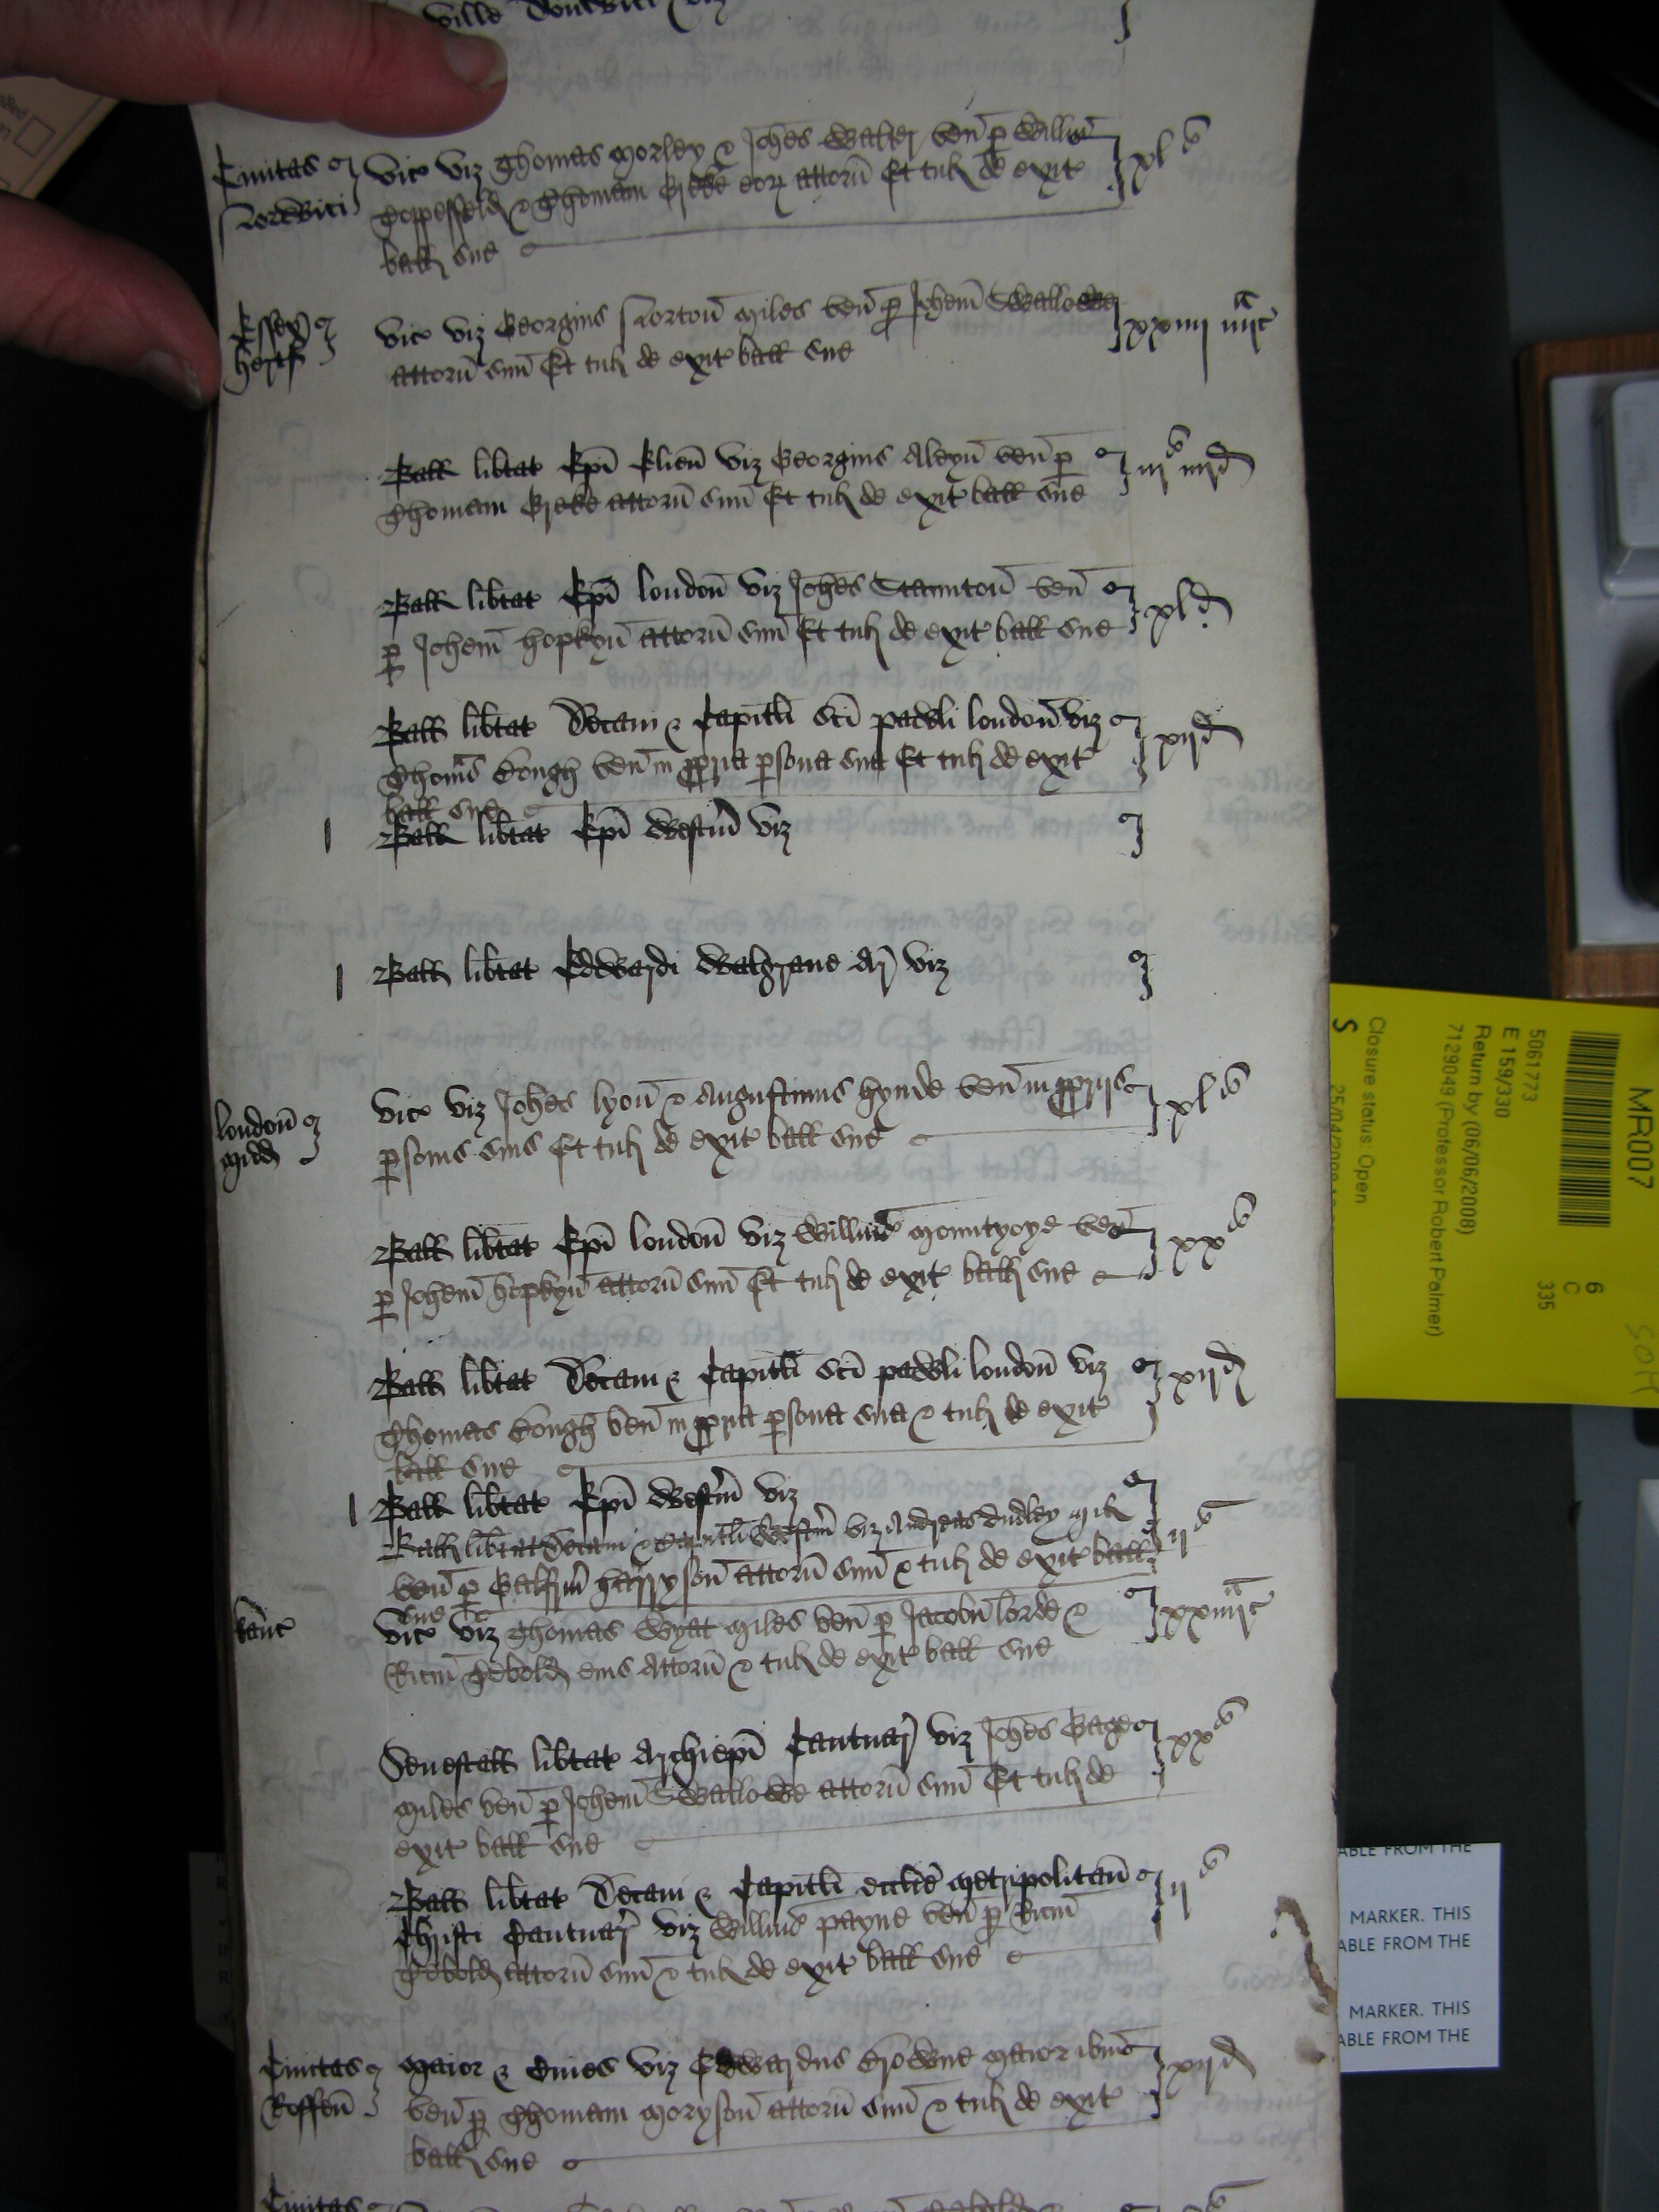 Civitas Norwici
Vic viz Thomas Morley & Johes Walter ven p Willm
Toppesfeld & Thomam Greke eor attorn Et tulit de exit
ball sue
xls
Essex Hertf
Vic viz Georgius Norton Miles ven p Johem Swallowe
attorn suu Et tulit de exit ball sue
Ball libtat Epi Elien viz Georgius Aleyn ven p
Thomam Greke attorn suu Et tulit de exit ball sue
iijs iiijd
Ball libtat Epi London viz Johes Staunton ven
p Johem Hopkyn attorn suu Et tulit de exit ball sue
xld
Ball libtat Decani & Capitli Sci Pawli London viz
Thomas Bough ven in ppria psona sua Et tulit de exit
ball sue
xijd
Ball libtat Epi Westm viz
Ball libtat Edwardi Walgrave Ar viz
London Midd
Vic viz Johes Lyon & Augustinus Hynde ven in pprijs
psonis suis Et tulit de exit ball sue
xls
Ball libtat Epi London viz Willms Mountyoye ven
p Johem Hopkyn attorn suu Et tulit de exit ball sue
xxs
Ball libtat Decani & Capitli Sci Pawli London viz
Thomas Bough ven in ppria psona sua & tulit de exit
ball sue
xijd
Ball libtat Epi Westm viz
Ball libtat Decani & Capitli Westm viz Andreas Dudley Mil
ven p Galfrm Harryson attorn suu & tulit de exit ball
sue
ijs
Kanc
Vic viz Thomas Wyat Miles ven p Jacobu Lorde &
Ricm Tebold eius Attorn & tulit de exit ball sue
Senescall libtat Archiepi Cantuar viz Johes Gage
Miles ven p Johem Swallowe attorn suu Et tulit de
exit ball sue
xxs
Ball libtat Decani & Capitli ecclie Metropolitan
Christi Cantuar viz Willms Payne ven p Ricm
Tebold attorn suu & tulit de exit ball sue
ijs
Civitas Roffen
Maior & Cives viz Edwardus Browne Maior ibm
ven p Thomam Moryson attorn suu & tulit de exit
ball sue
xijd
Civitas
MR007
5061773
E 159/330
Return by (06/06/2008)
7129049 (Professor Robert Palmer)
Closure status: Open
S
6
C
335
ABLE FROM THE
MARKER. THIS
ABLE FROM THE
MARKER. THIS
ABLE FROM THE